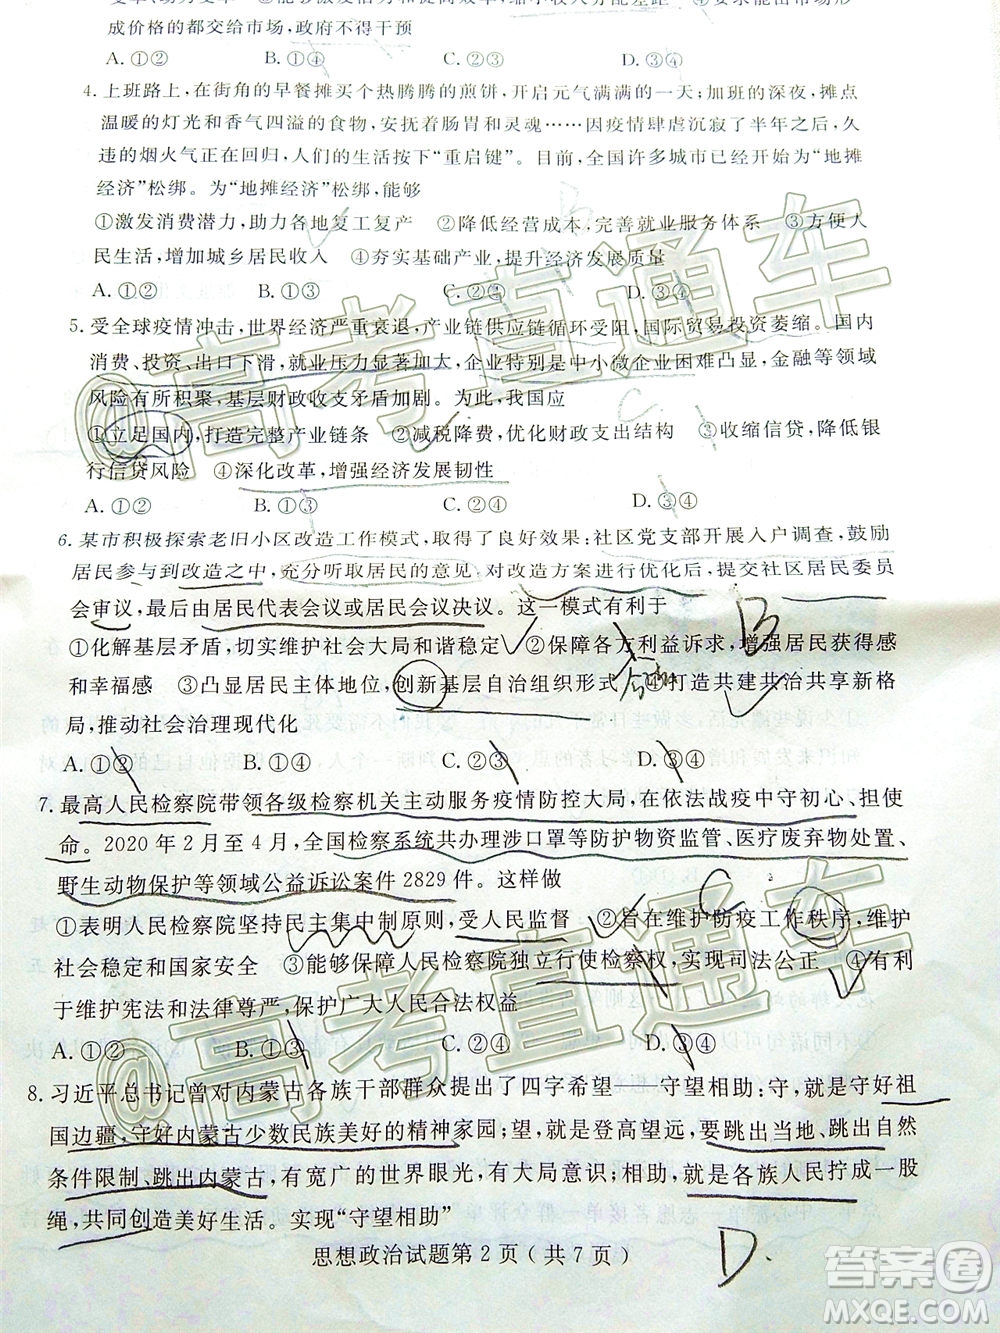 成价格的都交给市场，政府不得干预
A. ①② B. ①④ C. ②③ D. ③④
4. 上班路上，在街角的早餐摊买个热腾腾的煎饼，开启元气满满的一天；加班的深夜，摊点
温暖的灯光和香气四溢的食物，安抚着肠胃和灵魂……因疫情肆虐沉寂了半年之后，久
违的烟火气正在回归，人们的生活按下“重启键”。目前，全国许多城市已经开始为“地摊
经济”松绑。为“地摊经济”松绑，能够
①激发消费潜力，助力各地复工复产 ②降低经营成本，完善就业服务体系 ③方便人
民生活，增加城乡居民收入 ④夯实基础产业，提升经济发展质量
A. ①② B. ①③ C. ②④ D. ③④
5. 受全球疫情冲击，世界经济严重衰退，产业链供应链循环受阻，国际贸易投资萎缩。国内
消费、投资、出口下滑，就业压力显著加大，企业特别是中小微企业困难凸显，金融等领域
风险有所积聚，基层财政收支矛盾加剧。为此，我国应
①立足国内，打造完整产业链条 ②减税降费，优化财政支出结构 ③收缩信贷，降低银
行信贷风险 ④深化改革，增强经济发展韧性
A. ①② B. ①③ C. ②④ D. ③④
6. 某市积极探索老旧小区改造工作模式，取得了良好效果：社区党支部开展入户调查，鼓励
居民参与到改造之中，充分听取居民的意见，对改造方案进行优化后，提交社区居民委员
会审议，最后由居民代表会议或居民会议决议。这一模式有利于
B
①化解基层矛盾，切实维护社会大局和谐稳定 ②保障各方利益诉求，增强居民获得感
和幸福感 ③凸显居民主体地位，创新基层自治组织形式 ④打造共建共治共享新格
局，推动社会治理现代化
A. ①② B. ①④ C. ②③ D. ③④
7. 最高人民检察院带领各级检察机关主动服务疫情防控大局，在依法战疫中守初心、担使
命。2020 年 2 月至 4 月，全国检察系统共办理涉口罩等防护物资监管、医疗废弃物处置、
野生动物保护等领域公益诉讼案件 2829 件。这样做
C
①表明人民检察院坚持民主集中制原则，受人民监督 ②旨在维护防疫工作秩序，维护
社会稳定和国家安全 ③能够保障人民检察院独立行使检察权，实现司法公正 ④有利
于维护宪法和法律尊严，保护广大人民合法权益
A. ①② B. ①③ C. ②④ D. ③④
8. 习近平总书记曾对内蒙古各族干部群众提出了四字希望——守望相助：守，就是守好祖
国边疆，守好内蒙古少数民族美好的精神家园；望，就是登高望远，要跳出当地、跳出自然
条件限制、跳出内蒙古，有宽广的世界眼光，有大局意识；相助，就是各族人民拧成一股
绳，共同创造美好生活。实现“守望相助”
D.
思想政治试题第 2 页（共 7 页）
@高考直通车
@高考直通车
答案圈
MXQE.COM